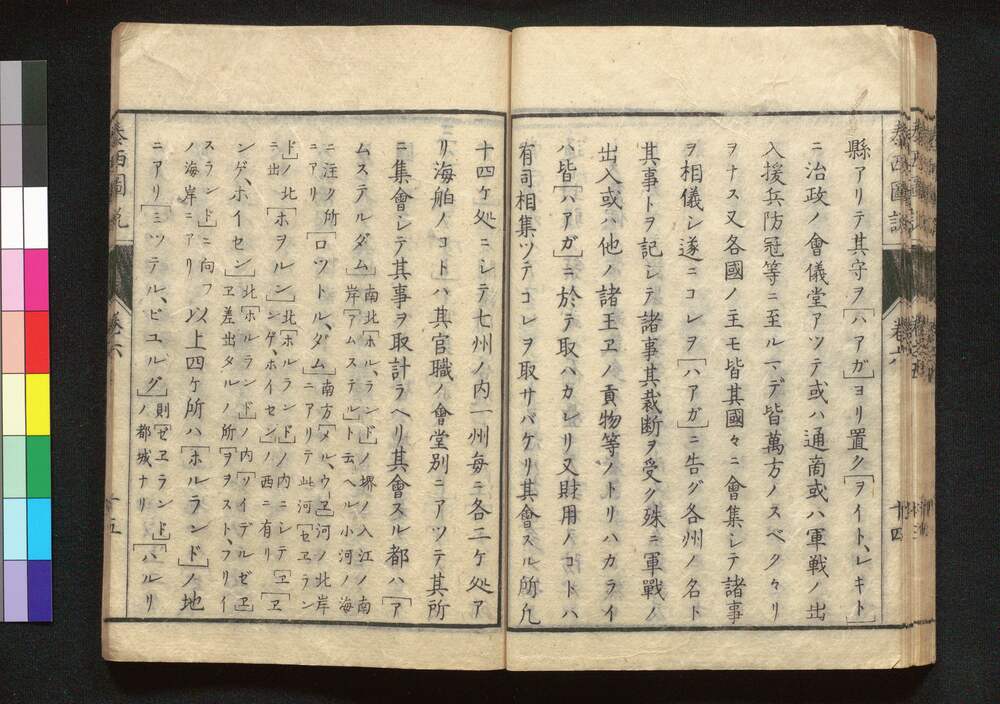 泰西圖説
巻六
十四
縣アリテ其守ヲ[ハアガ]ヨリ置ク[ヲイト、レキト]
ニ治政ノ會儀堂アツテ或ハ通商或ハ軍戦ノ出
入援兵防冠等ニ至ルマデ皆萬方ノスベクヽリ
ヲナス又各國ノ主モ皆其國々ニ會集シテ諸事
ヲ相儀シ遂ニコレヲ[ハアガ]ニ告グ各州ノ名ト
其事トヲ記シテ諸事其裁断ヲ受ク殊ニ軍戰ノ
出入或ハ他ノ諸王ヱノ貢物等ノトリハカライ
ハ皆[ハアガ]ニ於テ取ハカレリ又財用ノコトハ
有司相集ツテコレヲ取サバケリ其會スル所凡
十四ケ処ニシテ七州ノ内一州毎ニ各二ケ処ア
リ海舶ノコト[ハ其官職ノ會堂別ニアツテ其所
ニ集會シテ其事ヲ取計ラヘリ其會スル都ハ[ア
ムステルダム]南北[ホル、ランド]ノ堺ノ入江ノ南
岸[アムステル]ト云ヘル小河ノ海
ニ注ク所
ニアリ
[ロツトル、ダム]南方[メル、ウヱ]河ノ北岸
ニアリテ此河[セヱラン
ド]ノ北
ニ出
[ホヲルン]北[ホルランド]ノ内ニシテ[ヱ
ンゲ、ホイセン]ノ西ニ有リ
[ヱ
ンゲ、ホイセン]北[ホルランド]ノ内[ソイデルゼヱ
ヱ差出タルノ所[ヲヲスト、フリイ
スランド]ニ向フ
ノ海岸ニアリ
以上四ケ所ハ[ホルランド]ノ地
ニアリ[ミツテル、ビユルグ]則[ゼヱランド]
ノ都城ナリ
[ハルリ
泰西圖説
巻六
十五